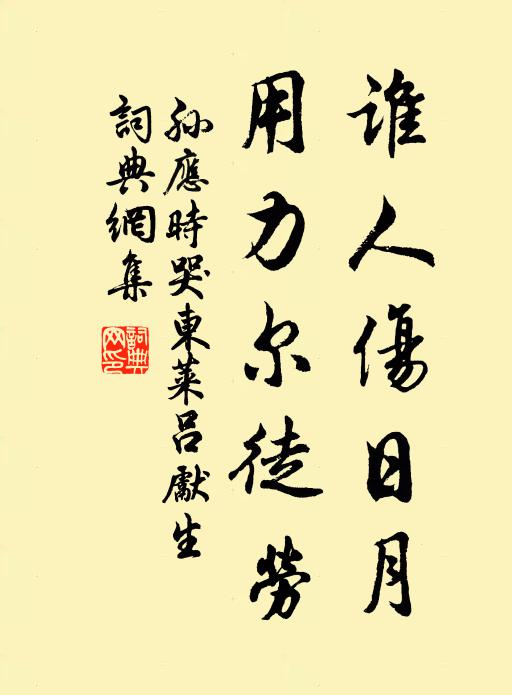 誰人傷日月
用力尔徒勞
孫應時哭東萊呂獻生
詞典網集
詞典
网印